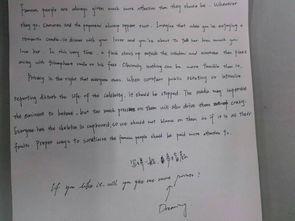 Famous people are always given much more attention than they should be. Whenever
they go, Cameras and the paparazzi always appear soon. Imagine that when you're enjoying a
romantic candle-lit dinner with your lover and you're about to tell her how much you
love her. In this very time, a flash shows up outside the window and someone
away with triumphant smile on his face. Obviously nothing can be more terrible than it.
Privacy is the right that everyone owns. When constant public scrutiny or intensive
reporting disturb the life of the celebrity, it should be stopped. The media may supervise
the eminent to behave, but too much pressure on them will also drive them crazy.
Everyone has the skeleton in cupboard, so we should not blame on them as if it is all their
faults. Proper ways to scrutinize the famous people should be paid more attention to.
If you like it, will you give me more praise?
Dreaming